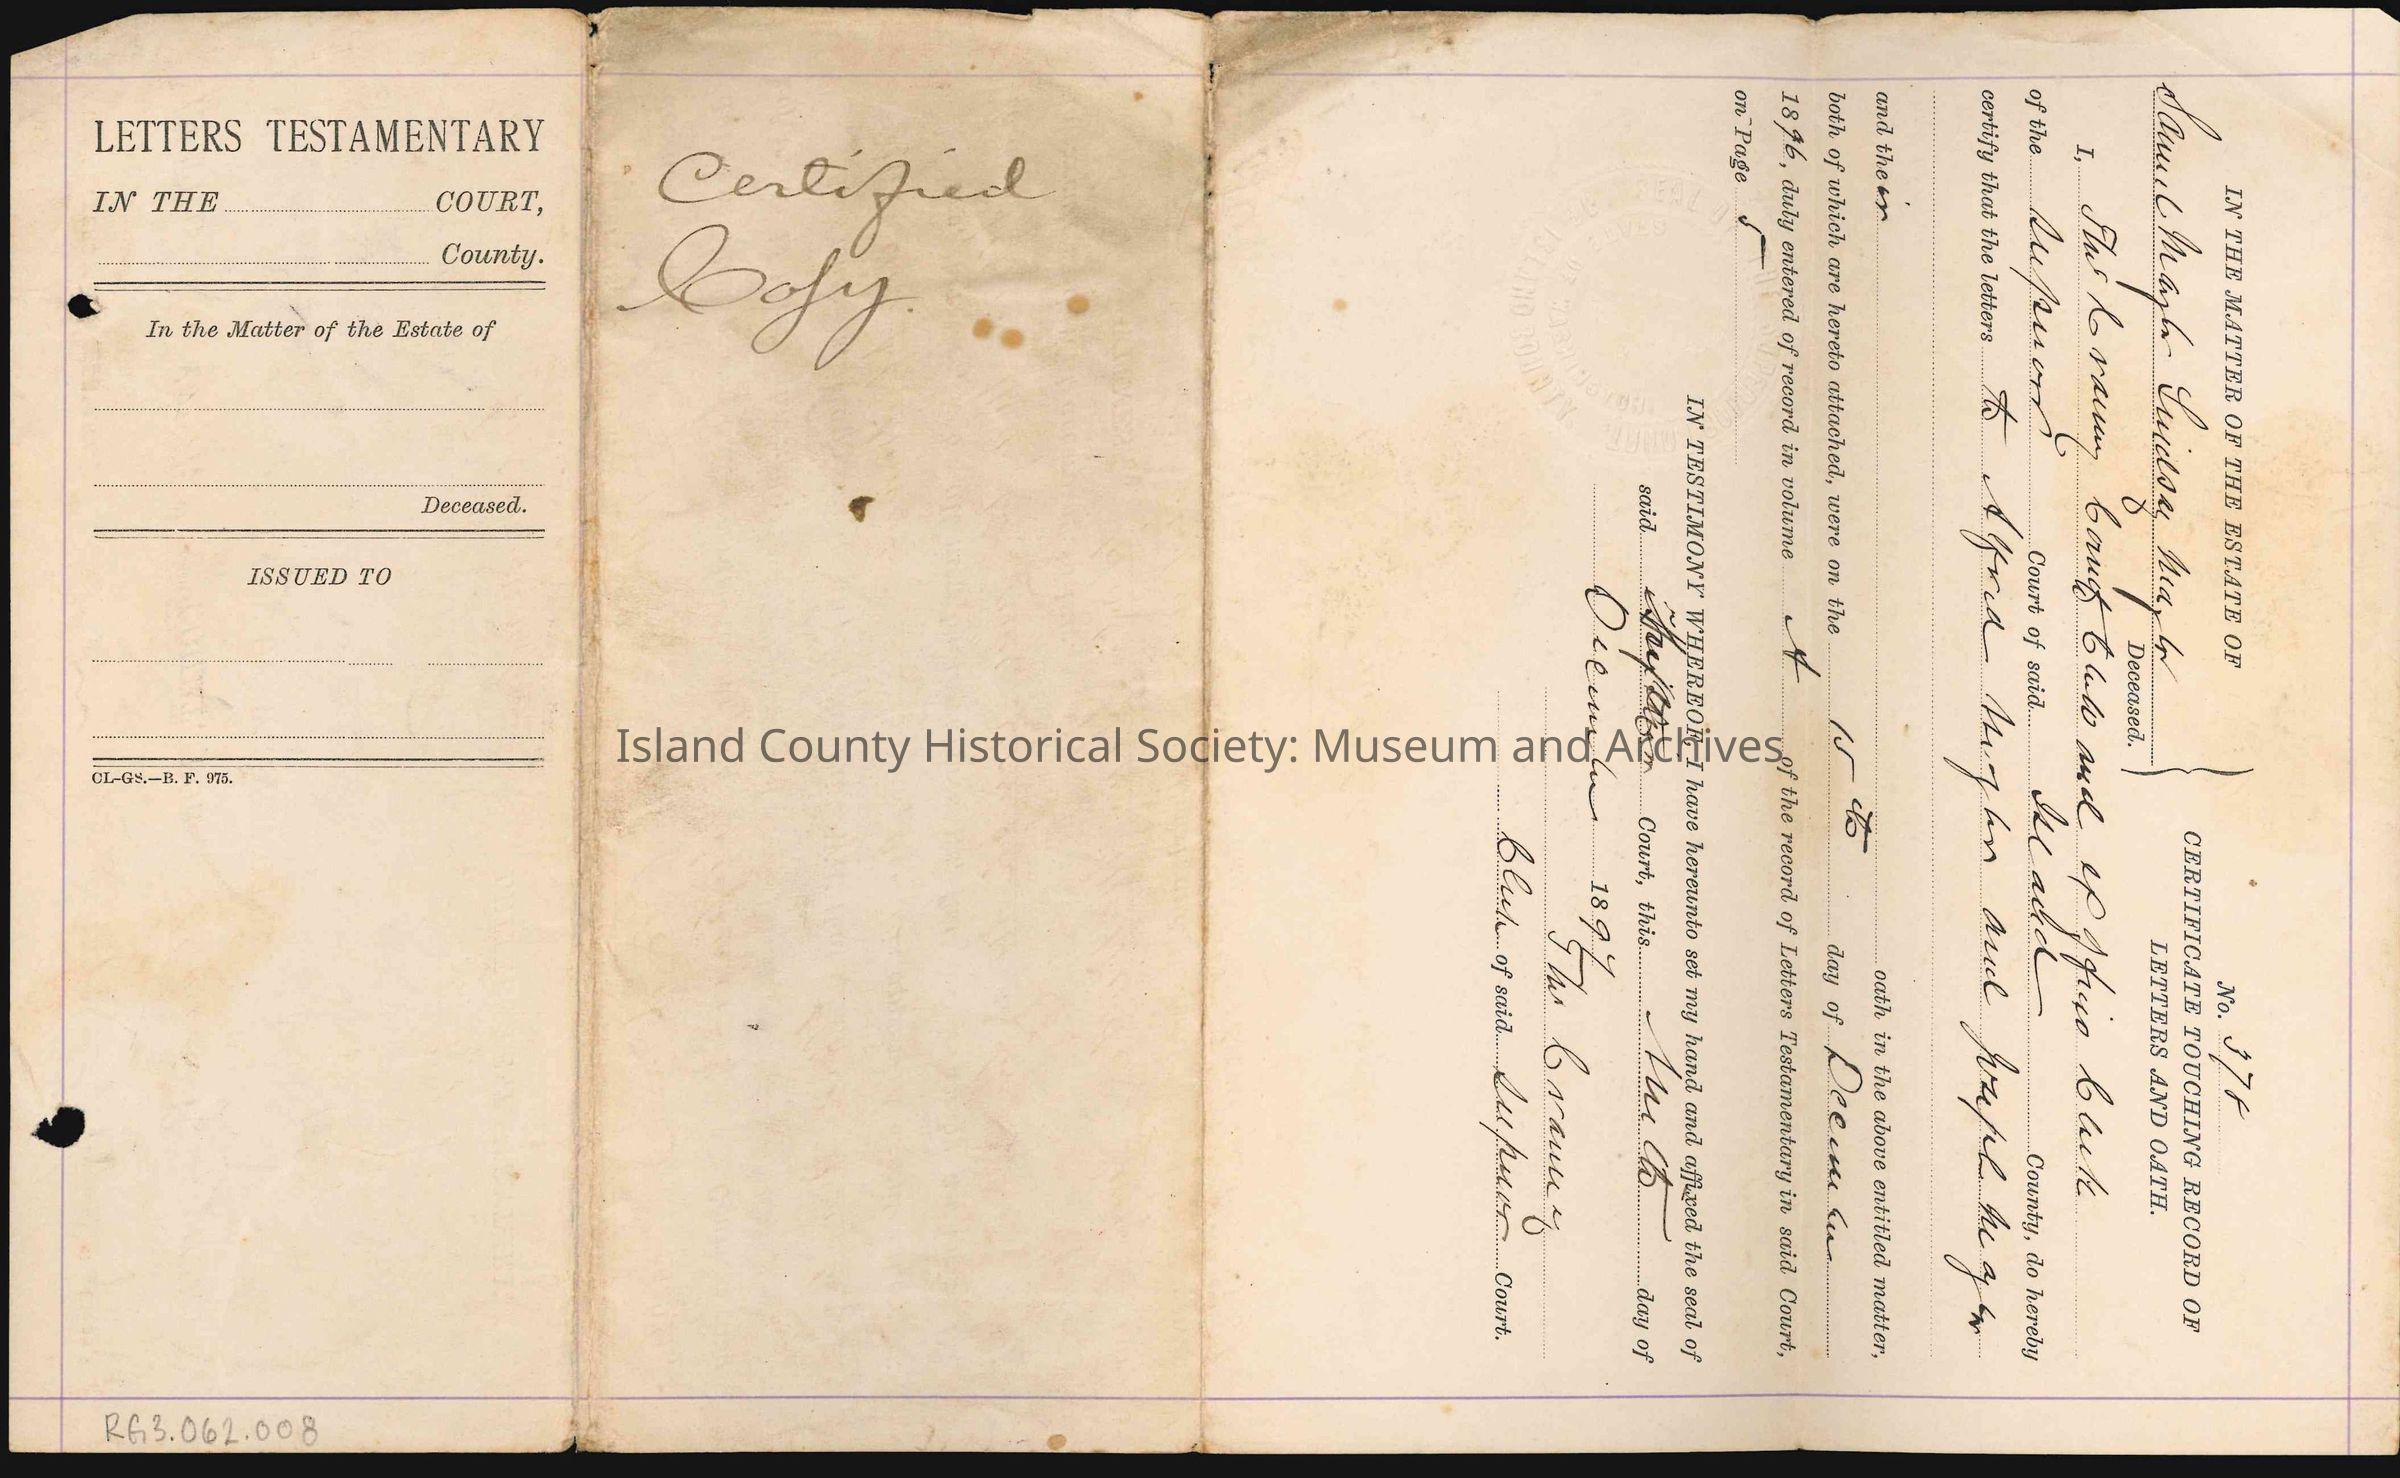 LETTERS TESTAMENTARY
IN THE COURT,
County.
In the Matter of the Estate of
Deceased.
ISSUED TO
CL-GS.—B. F. 975.
RG3.062.008
Certified
Copy.
Island County Historical Society: Museum and Archives
IN THE MATTER OF THE ESTATE OF
Samuel Maylor
Deceased.
No. 378
CERTIFICATE TOUCHING RECORD OF
LETTERS AND OATH.
I, Thos Cranney County Clerk and ex officio Clerk
of the Superior Court of said Island County, do hereby
certify that the letters to Alfred Maylor and Joseph Maylor
and their oath in the above entitled matter,
both of which are hereto attached, were on the 15th day of December
1896, duly entered of record in volume A of the record of Letters Testamentary in said Court,
on Page 5
IN TESTIMONY WHEREOF, I have hereunto set my hand and affixed the seal of
said Superior Court, this day of
December 1897
Thos Cranney
Clerk of said Superior Court.